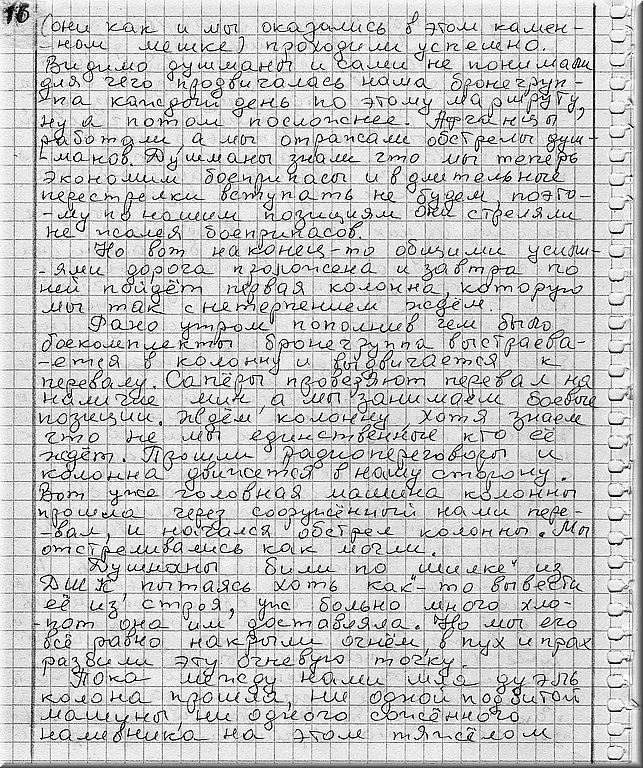 16
(они как и мы оказались в этом камен-
-ном мешке) проходили успешно.
Видимо душманы и сами не понимали
для чего продвигалась наша бронегруп-
-па каждый день по этому маршруту,
ну а потом посложнее. Афганцы
работали, а мы отражали обстрелы душ-
-манов. Душманы знали что мы теперь
экономим боеприпасы и в длительные
перестрелки вступать не будем, поэто-
-му по нашим позициям они стреляли
не жалея боеприпасов.
Но вот наконец-то общими усили-
-ями дорога проложена и завтра по
ней пойдёт первая колонна, которую
мы так с нетерпением ждём.
Рано утром пополнив чем было
боекомплекты бронегруппа выстраева-
-ется в колонну и выдвигается к
перевалу. Сапёры проверяют перевал на
наличие мин, а мы занимаем боевые
позиции. Ждём колонну, хотя знаем
что не мы единственные кто её
ждёт. Прошли радиопереговоры и
колонна движется в нашу сторону.
Вот уже головная машина колонны
прошла через сооружённый нами пере-
-вал, и начался обстрел колонны. Мы
отстреливались как могли.
Душманы били по "шилке" из
ДШК, пытаясь хоть как-то вывести
её из строя, уж больно много хло-
-пот она им доставляла. Но мы его
всё равно накрыли огнём, в пух и прах
разбили эту огневую точку.
Пока между нами шла дуэль
колона прошла, ни одной подбитой
машины, ни одного сожжённого
наливника на этом тяжёлом